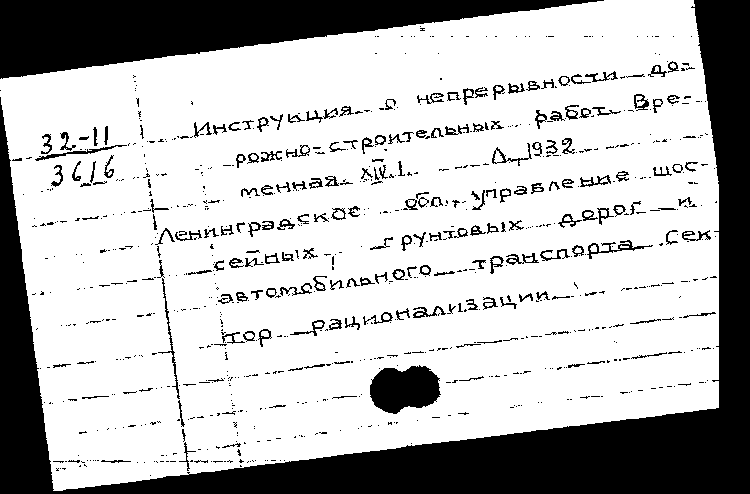 32-11
3616
Инструкция о непрерывности до-
рожно-строительных работ. Вре-
менная. XIV. I. Л., 1932
Ленинградское обл., управление шос-
сейных, грунтовых дорог и
автомобильного транспорта. Сек-
тор рационализации.